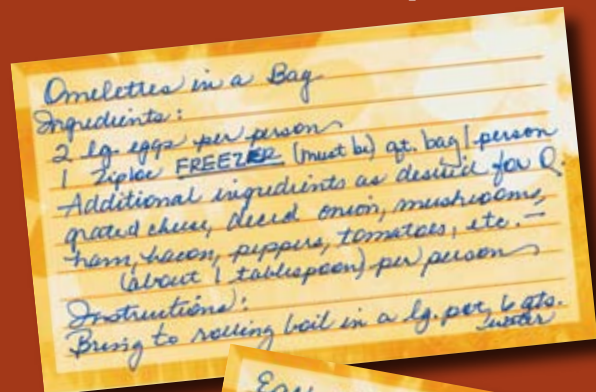 Omelettes in a Bag
Ingredients:
2 lg. eggs per person
1 Ziploc FREEZER (must be) qt. bag/person
Additional ingredients as desired for O.
grated cheese, diced onion, mushrooms,
ham, bacon, peppers, tomatoes, etc. –
(about 1 tablespoon) per person
Instructions:
Bring to rolling boil in a lg. pot, 6 qts.
water